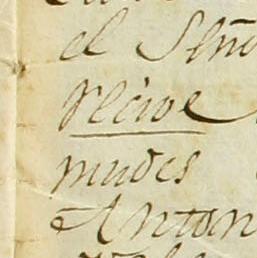 el Señ
Recive
mudes
Anton